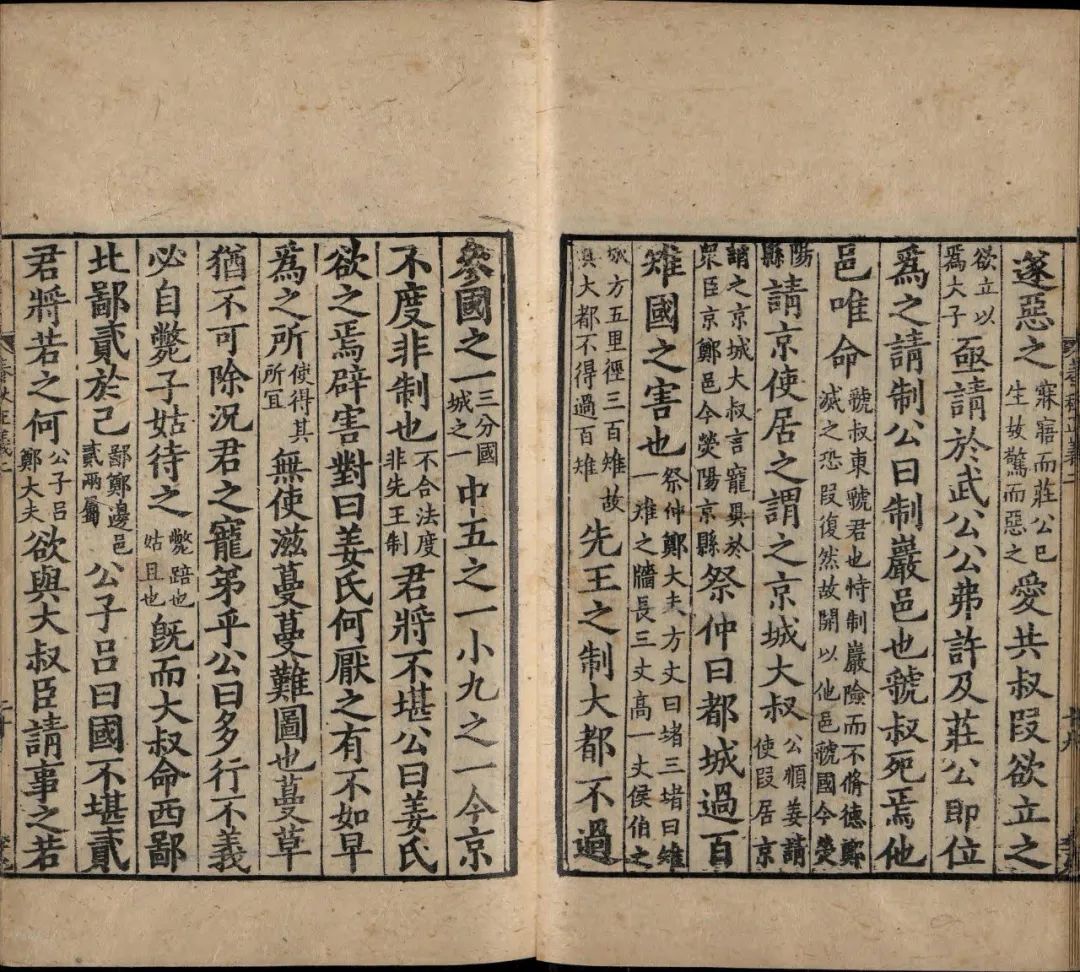 遂惡之寐寤而莊公已生故驚而惡之愛共叔段欲立之
欲立以爲大子亟請於武公公弗許及莊公即位
爲之請制公曰制巖邑也虢叔死焉他
邑唯命虢叔東虢君也恃制巖險而不脩德鄭滅之恐段復然故開以他邑虢國今熒
陽縣請京使居之謂之京城大叔公順姜請使段居京
謂之京城大叔言寵異於衆臣京鄭邑今熒陽京縣祭仲曰都城過百
雉國之害也祭仲鄭大夫方丈曰堵三堵曰雉一雉之牆長三丈高一丈侯伯之
城方五里徑三百雉故其大都不得過百雉先王之制大都不過
參國之一三分國城之一中五之一小九之一今京
不度非制也不合法度非先王制君將不堪公曰姜氏
欲之焉辟害對曰姜氏何厭之有不如早
爲之所使得其所宜無使滋蔓蔓難圖也蔓草
猶不可除況君之寵弟乎公曰多行不義
必自斃子姑待之斃踣也姑且也旣而大叔命西鄙
北鄙貳於己鄙鄭邊邑貳兩屬公子呂曰國不堪貳
君將若之何公子呂鄭大夫欲與大叔臣請事之若